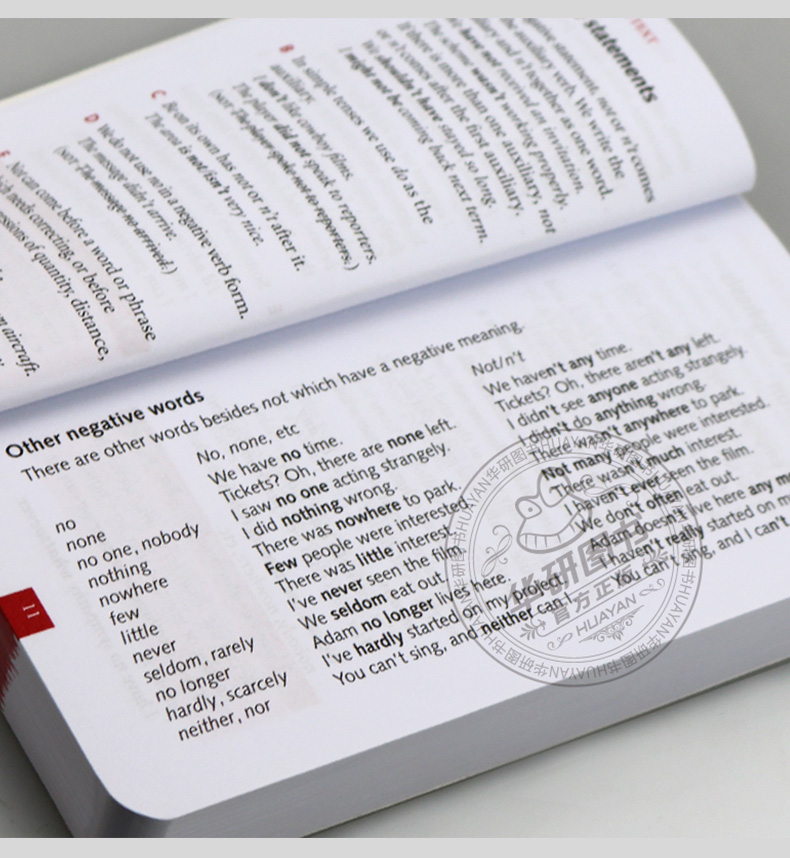 TEXT
statements
ative statement, not or n't comes
auxiliary verb. We write the
ry and n't together as one word.
have not received an invitation.
The scheme wasn't working properly.
If there is more than one auxiliary, not
or n't comes after the first auxiliary.
We shouldn't have stayed so long.
I might not be coming back next term.
B In simple tenses we use do as the
auxiliary.
I don't like cowboy films.
The player did not speak to reporters.
(NOT The player spoke not to reporters.)
C Be on its own has not or n't after it.
The area is not/isn't very nice.
D We do not use no in a negative verb form.
The message didn't arrive.
(NOT The message no arrived.)
E Not can come before a word or phrase
which needs correcting, or before
essions of quantity, distance,
aircraft.
Other negative words
There are other words besides not which have a negative meaning.
No, none, etc Not/n't
no We have no time. We haven't any time.
none Tickets? Oh, there are none left. Tickets? Oh, there aren't any left.
no one, nobody I saw no one acting strangely. I didn't see anyone acting strangely.
nothing I did nothing wrong. I didn't do anything wrong.
nowhere There was nowhere to park. There wasn't anywhere to park.
few Few people were interested. Not many people were interested.
little There was little interest. There wasn't much interest.
never I've never seen the film. I haven't ever seen the film.
seldom, rarely We seldom eat out. We don't often eat out.
no longer Adam no longer lives here. Adam doesn't live here any mo
hardly, scarcely I've hardly started on my project. I haven't really started on m
neither, nor You can't sing, and neither can I. You can't sing, and I can't
11
华研图书HUAYAN华研图书HUAYAN华研图书HUAYAN
华研图书
官方正品
HUAYAN